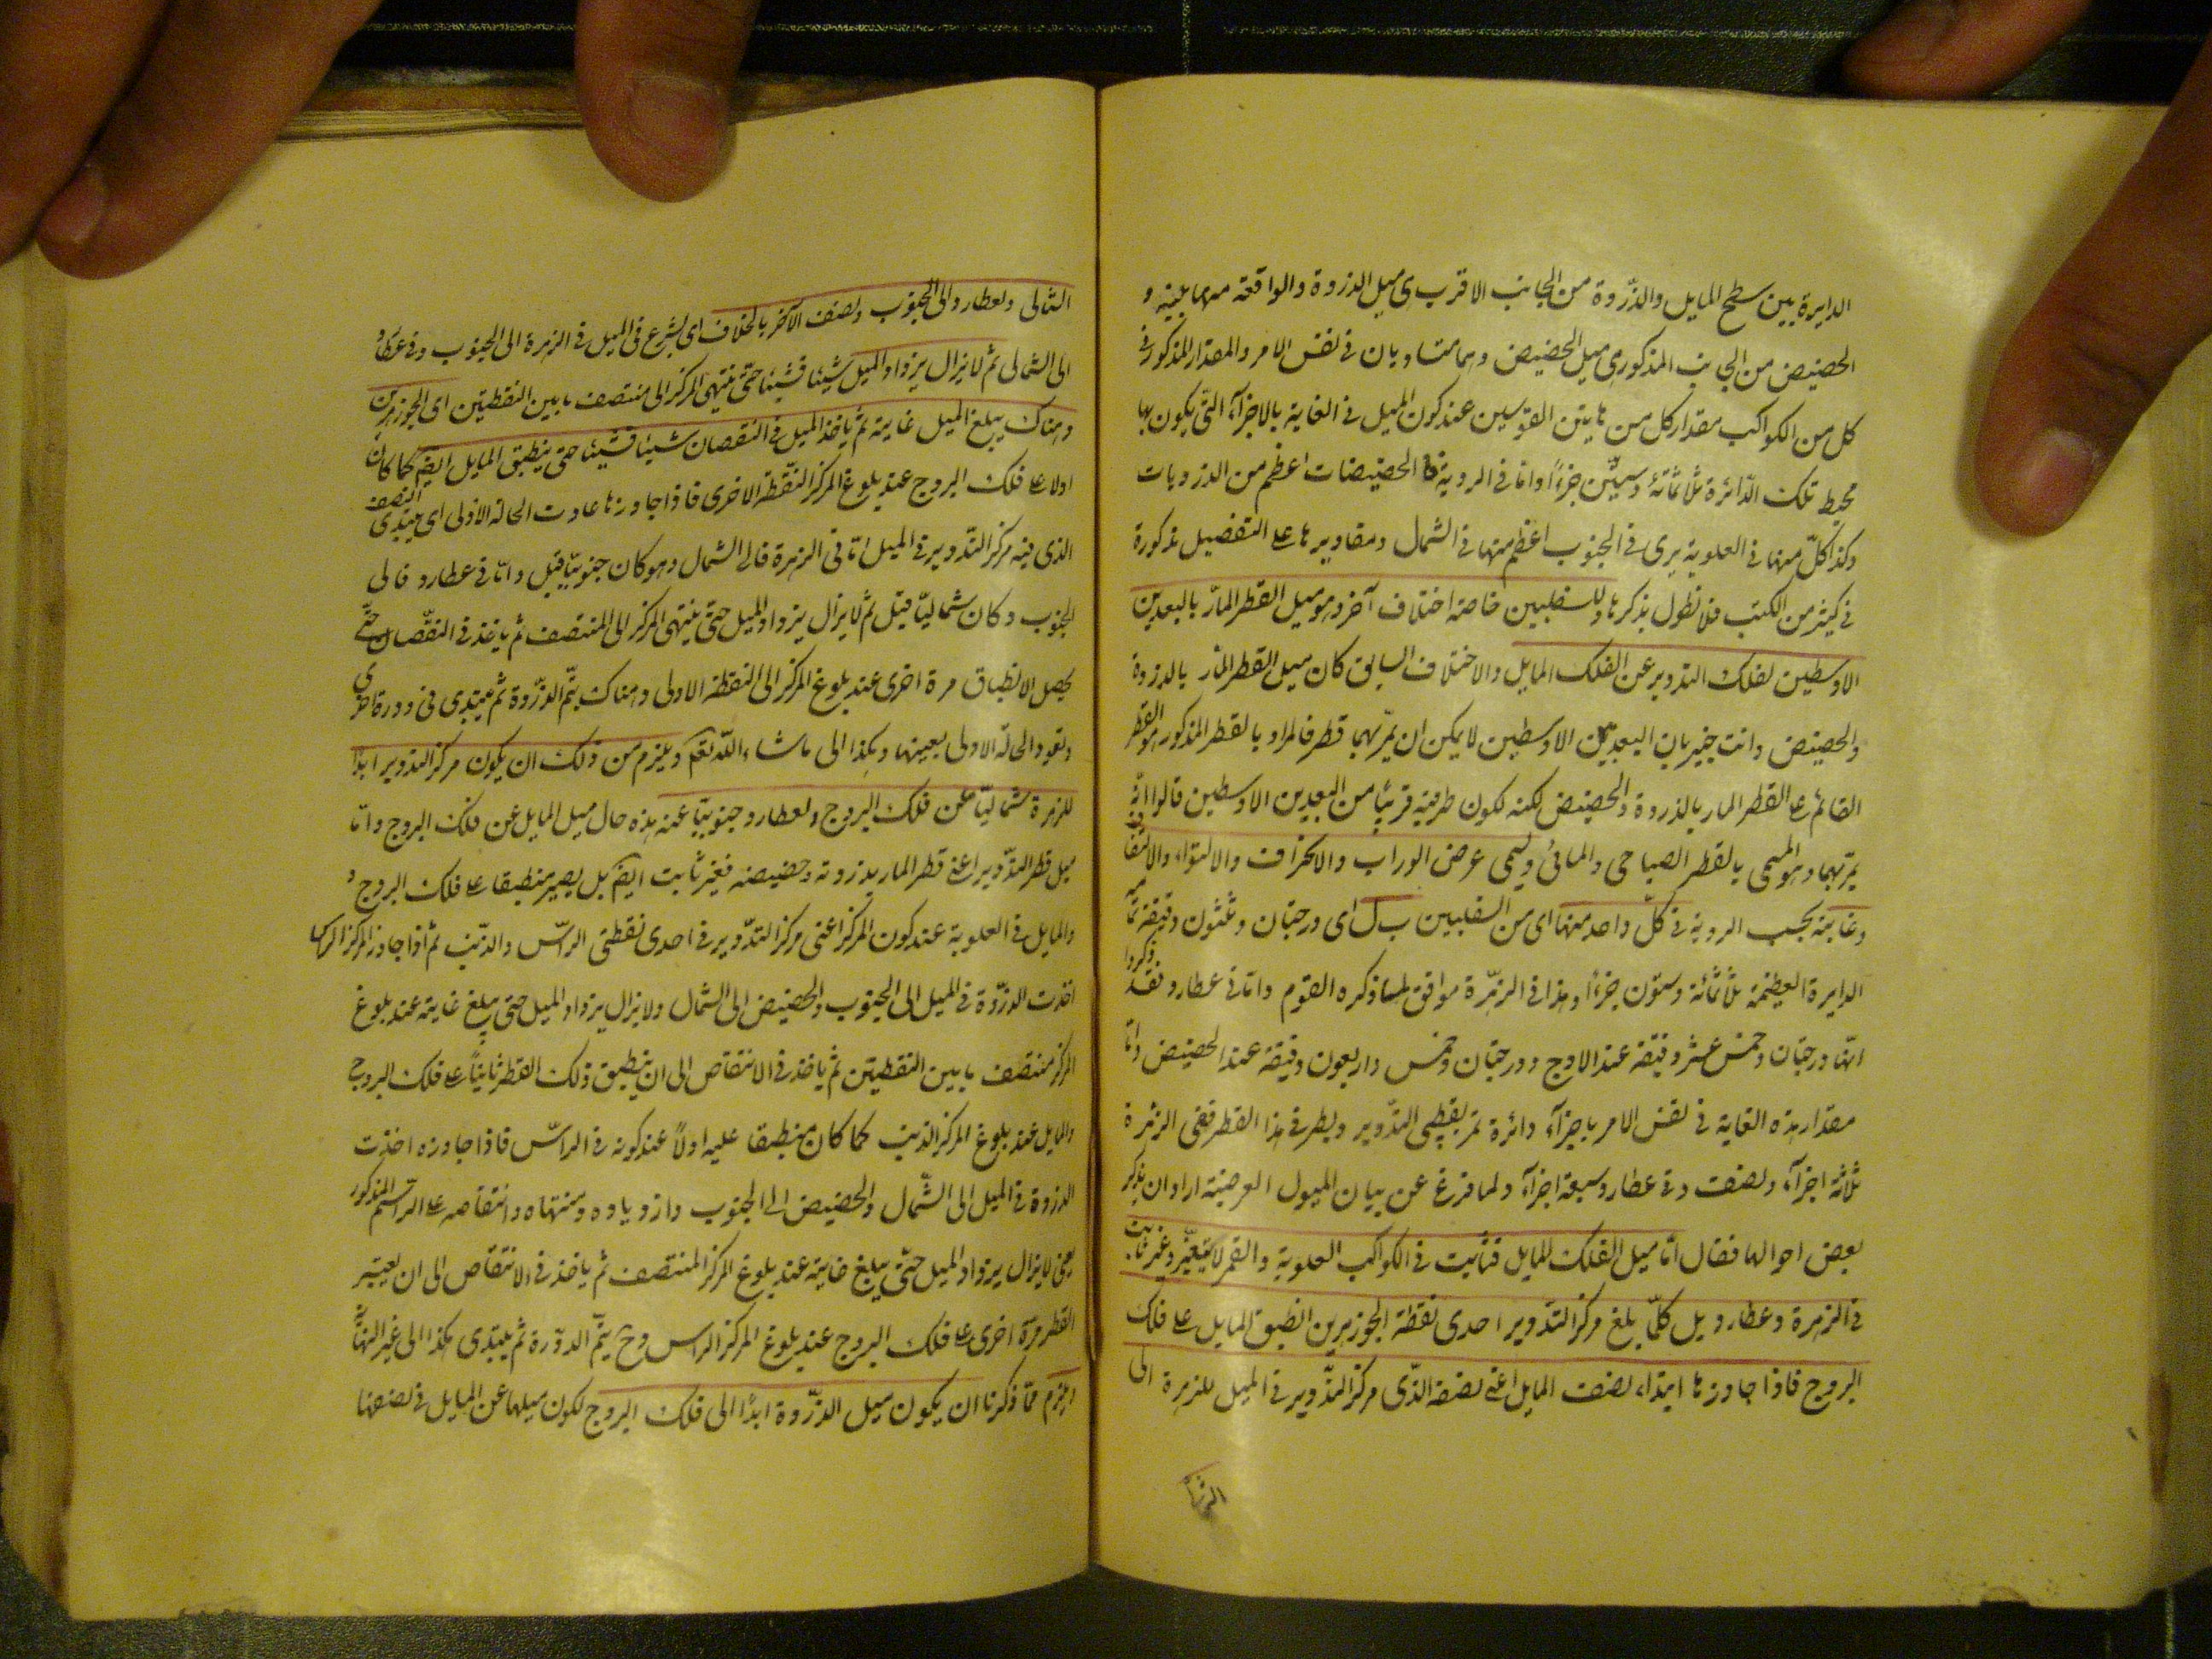 الدايرة بين سطح المايل والذّروة من الجانب الاقرب ى ميل الذروة والواقعة منها بينه و
الحضيض من الجانب المذكور ى ميل الحضيض وهما متساويان فى نفس الامر والمقدار المذكور فى
كل من الكواكب مقدار كل من هاتين القوسين عند كون الميل فى الغاية بالاجزآء التى يكون بها
محيط تلك الدّائرة ثلاثمائة وستّين جزءاً واما فى الروية فا الحضيضات اعظم من الذرويات
وكذا كلّ منها فى العلوية يرى فى الجنوب اعظم منها فى الشمال ومقاديرها على التفصيل مذكورة
فى كثير من الكتب فلا نطول بذكرها وللسفليين خاصة اختلاف آخر وهو ميل القطر المارّ بالبعدين
الاوسطين لفلك التدوير عن الفلك المايل والاختلاف السابق كان ميل القطر المار بالذروة
والحضيض وانت خبير بان البعدين الاوسطين لا يمكن ان يمرّ بهما قطر فالمراد بالقطر المذكور هو القطر
القائم على القطر المار بالذروة والحضيض لكنه لكون طرفيه قريباً من البعدين الاوسطين قالوا انّه
يمرّ بهما وهو المسمى بالقطر الصباحى والمسائى ويسمى عرض الوراب والانحراف والالتواء والالتفاف
وغايته بحسب الروية فى كلّ واحد منهما اى من السفليين ب ل اى درجتان وثلثون دقيقة مما به
الدايرة العظيمة ثلاثمائة وستون جزءاً وهذا فى الزهرة موافق لما ذكره القوم واما فى عطارد فقد ذكروا
انّها درجتان وخمس عشر دقيقة عند الاوج ودرجتان وخمس واربعون دقيقة عند الحضيض وامّا
مقدار هذه الغاية فى نفس الامر باجزآء دائرة تمر بقطبى التدوير وبطرفى هذا القطر ففى الزهرة
ثلثة اجزآء ونصف وفى عطارد سبعة اجزآء ولما فرغ عن بيان الميول العرضية اراد ان يذكر
بعض احوالها فقال امّا ميل الفلك المايل فثابت فى الكواكب العلوية والقمر لا يتغيّر وغير ثابت
فى الزهرة وعطارد بل كلّما بلغ مركز التدوير احدى نقطة الجوزهرين انطبق المايل على فلك
البروج فاذا جاوزها ابتداء نصف المايل اعنى نصفه الذّى مركز التّدوير فى الميل للزهرة الى
الشمال
الشمالى ولعطارد الى الجنوب ونصف الآخر بالخلاف اى يشرع فى الميل فى الزهرة الى الجنوب وفى عطارد
الى الشمالى ثم لا يزال يزداد الميل شيئا فشيئا حتى ينتهى المركز الى منتصف ما بين النقطتين اى الجوزهرين
وهناك يبلغ الميل غايته ثم ياخذ الميل فى النقصان شيئا فشيئا حتى ينطبق المايل ايضا كما كان
اولا على فلك البروج عند بلوغ المركز النّقطة الاخرى فاذا جاوزها عادت الحالة الاولى اى يبتدى النصف
الذى فيه مركز التدوير فى الميل امّا فى الزهرة فالى الشمال وهو كان جنوبيّا قبل وامّا فى عطارد فالى
الجنوب وكان شماليّا قبل ثم لا يزال يزداد الميل حتى ينتهى المركز الى المنتصف ثم ياخذ فى النقّصان حتّى
يحصل الانطباق مرة اخرى عند بلوغ المركز الى النقطة الاولى وهناك يتّم الدّورة ثم يبتدى فى دورة اخرى
وتعود الحالة الاولى بعينها وهكذا الى ما شاء اللّه تعم ويلزم من ذلك ان يكون مركز التدوير ابدًا
للزهرة شماليّا عن فلك البروج ولعطارد جنوبيّا عنه هذه حال ميل المايل عن فلك البروج وامّا
ميل قطر التّدوير اعنى قطر المار بذروته وحضيضه فغير ثابت ايضا بل يصير منطبقا على فلك البروج و
والمايل فى العلوية عند كون المركز اعنى مركز التدّوير فى احدى نقطتى الراسّ والذنب ثم اذا جاوز المركز الراس
اخذت الذروّة فى الميل الى الجنوب والحضيض الى الشمال ولا يزال يزداد الميل حتى يبلغ غايته عند بلوغ
المركز منتصف ما بين النقطتين ثم ياخذ فى الانتقاص الى ان ينطبق ذلك القطر ثانياً على فلك البروج
والمايل عند بلوغ المركز الذنب كما كان منطبقا عليه اولاً عند كونه فى الراسّ فاذا جاوزه اخذت
الذروة فى الميل الى الشّمال والحضيض الى الجنوب وازدياده ومنتهاه وانتقاصه على الرسم المذكور
يعنى لا يزال يزداد الميل حتّى يبلغ غايته عند بلوغ المركز المنتصف ثم ياخذ فى الانتقاص الى ان يصير
القطر مرّة اخرى على فلك البروج عند بلوغ المركز الراس وح يتّم الدوّرة ثم يبتدى هكذا الى غير النهاية
ويلزم ممّا ذكرنا ان يكون ميل الذّروة ابدًا الى فلك البروج لكون ميلها عن المايل فى نصفها